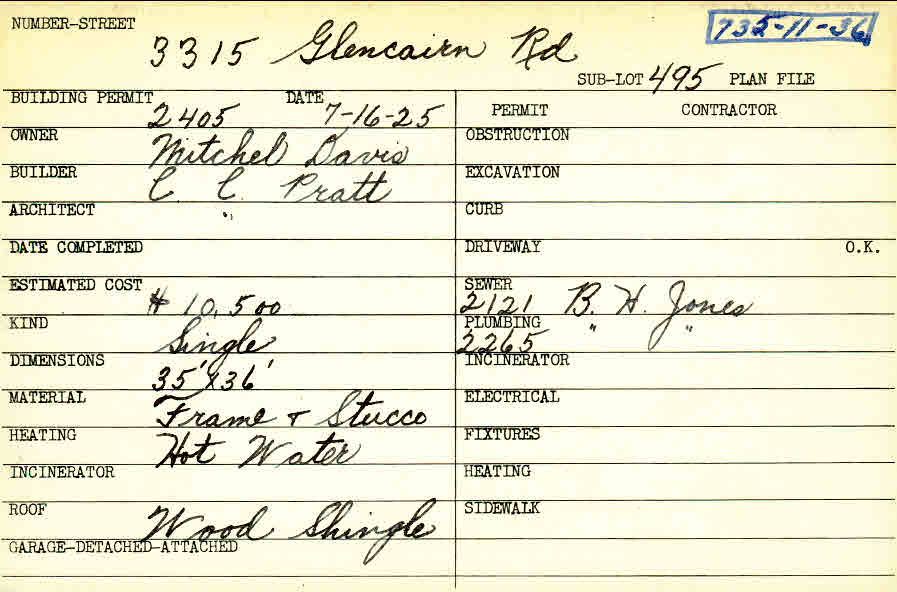 NUMBER-STREET 3315 Glencairn Rd 735-11-36
SUB-LOT 495 PLAN FILE
BUILDING PERMIT 2405 DATE 7-16-25
OWNER Mitchel Davis
BUILDER C. C. Pratt
ARCHITECT "
DATE COMPLETED
ESTIMATED COST $10,500
KIND Single
DIMENSIONS 35' x 36'
MATERIAL Frame + Stucco
HEATING Hot Water
INCINERATOR
ROOF Wood Shingle
GARAGE-DETACHED-ATTACHED
PERMIT CONTRACTOR
OBSTRUCTION
EXCAVATION
CURB
DRIVEWAY O.K.
SEWER 2121 B. H. Jones
PLUMBING 2265 " "
INCINERATOR
ELECTRICAL
FIXTURES
HEATING
SIDEWALK